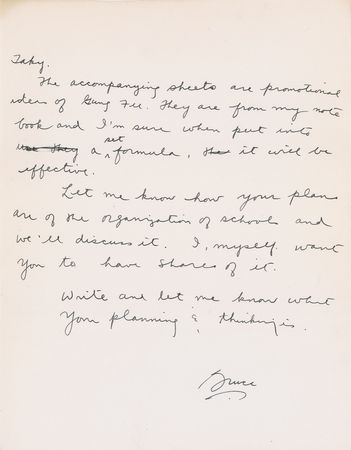 Taky.
The accompanying sheets are promotional
ideas of Gung Fu. They are from my note
book and I'm sure when put into
a set formula, it will be
effective.
Let me know how your plan
are of the organization of schools and
we'll discuss it. I, myself want
you to have shares of it.
Write and let me know what
Your planning & thinking is.
Bruce